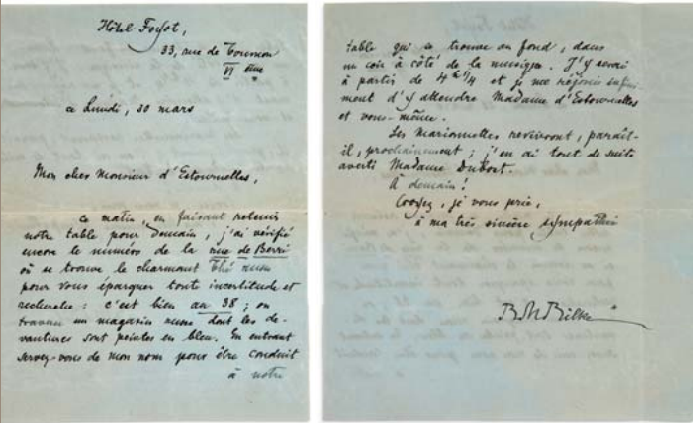 Hôtel Foyot,
33, rue de Tournon
VI ème
ce Lundi, 30 mars
Mon cher Monsieur d'Estournelles,
ce matin, en faisant retenir
notre table pour demain, j'ai vérifié
encore le numéro de la rue de Berri
où se trouve le charmant Thé russe
pour vous épargner toute incertitude et
recherche : c'est bien au 38 ; on
trouve un magasin russe dont les de-
vantures sont peintes en bleu. En entrant
servez-vous de mon nom pour être conduit
à notre
table qui se trouve au fond, dans
un coin à côté de la musique. J'y serai
à partir de 4 h 1/4 et je me réjouis infini-
ment d'y attendre Madame d'Estournelles
et vous-même.
Les Marionnettes revivront, paraît-
il, prochainement ; j'en ai tout de suite
averti Madame Dubost.
À demain !
Croyez, je vous prie,
à ma très sincère sympathie